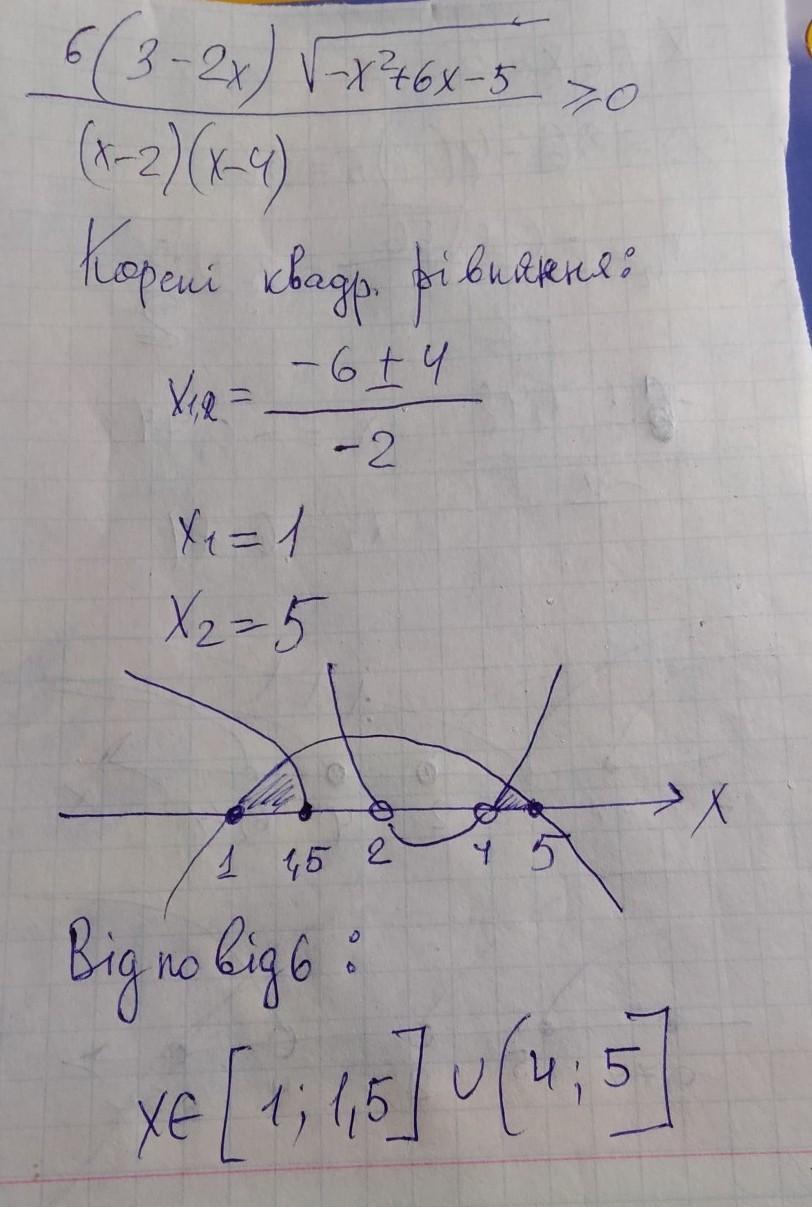 6(3-2x)√-x²+6x-5
≥0
(x-2)(x-4)
Корені квадр. рівняння:
x1,2= -6±4
-2
x1=1
x2=5
1 1,5 2 4 5 X
Відповідь:
x∈[1;1,5]∪(4;5]